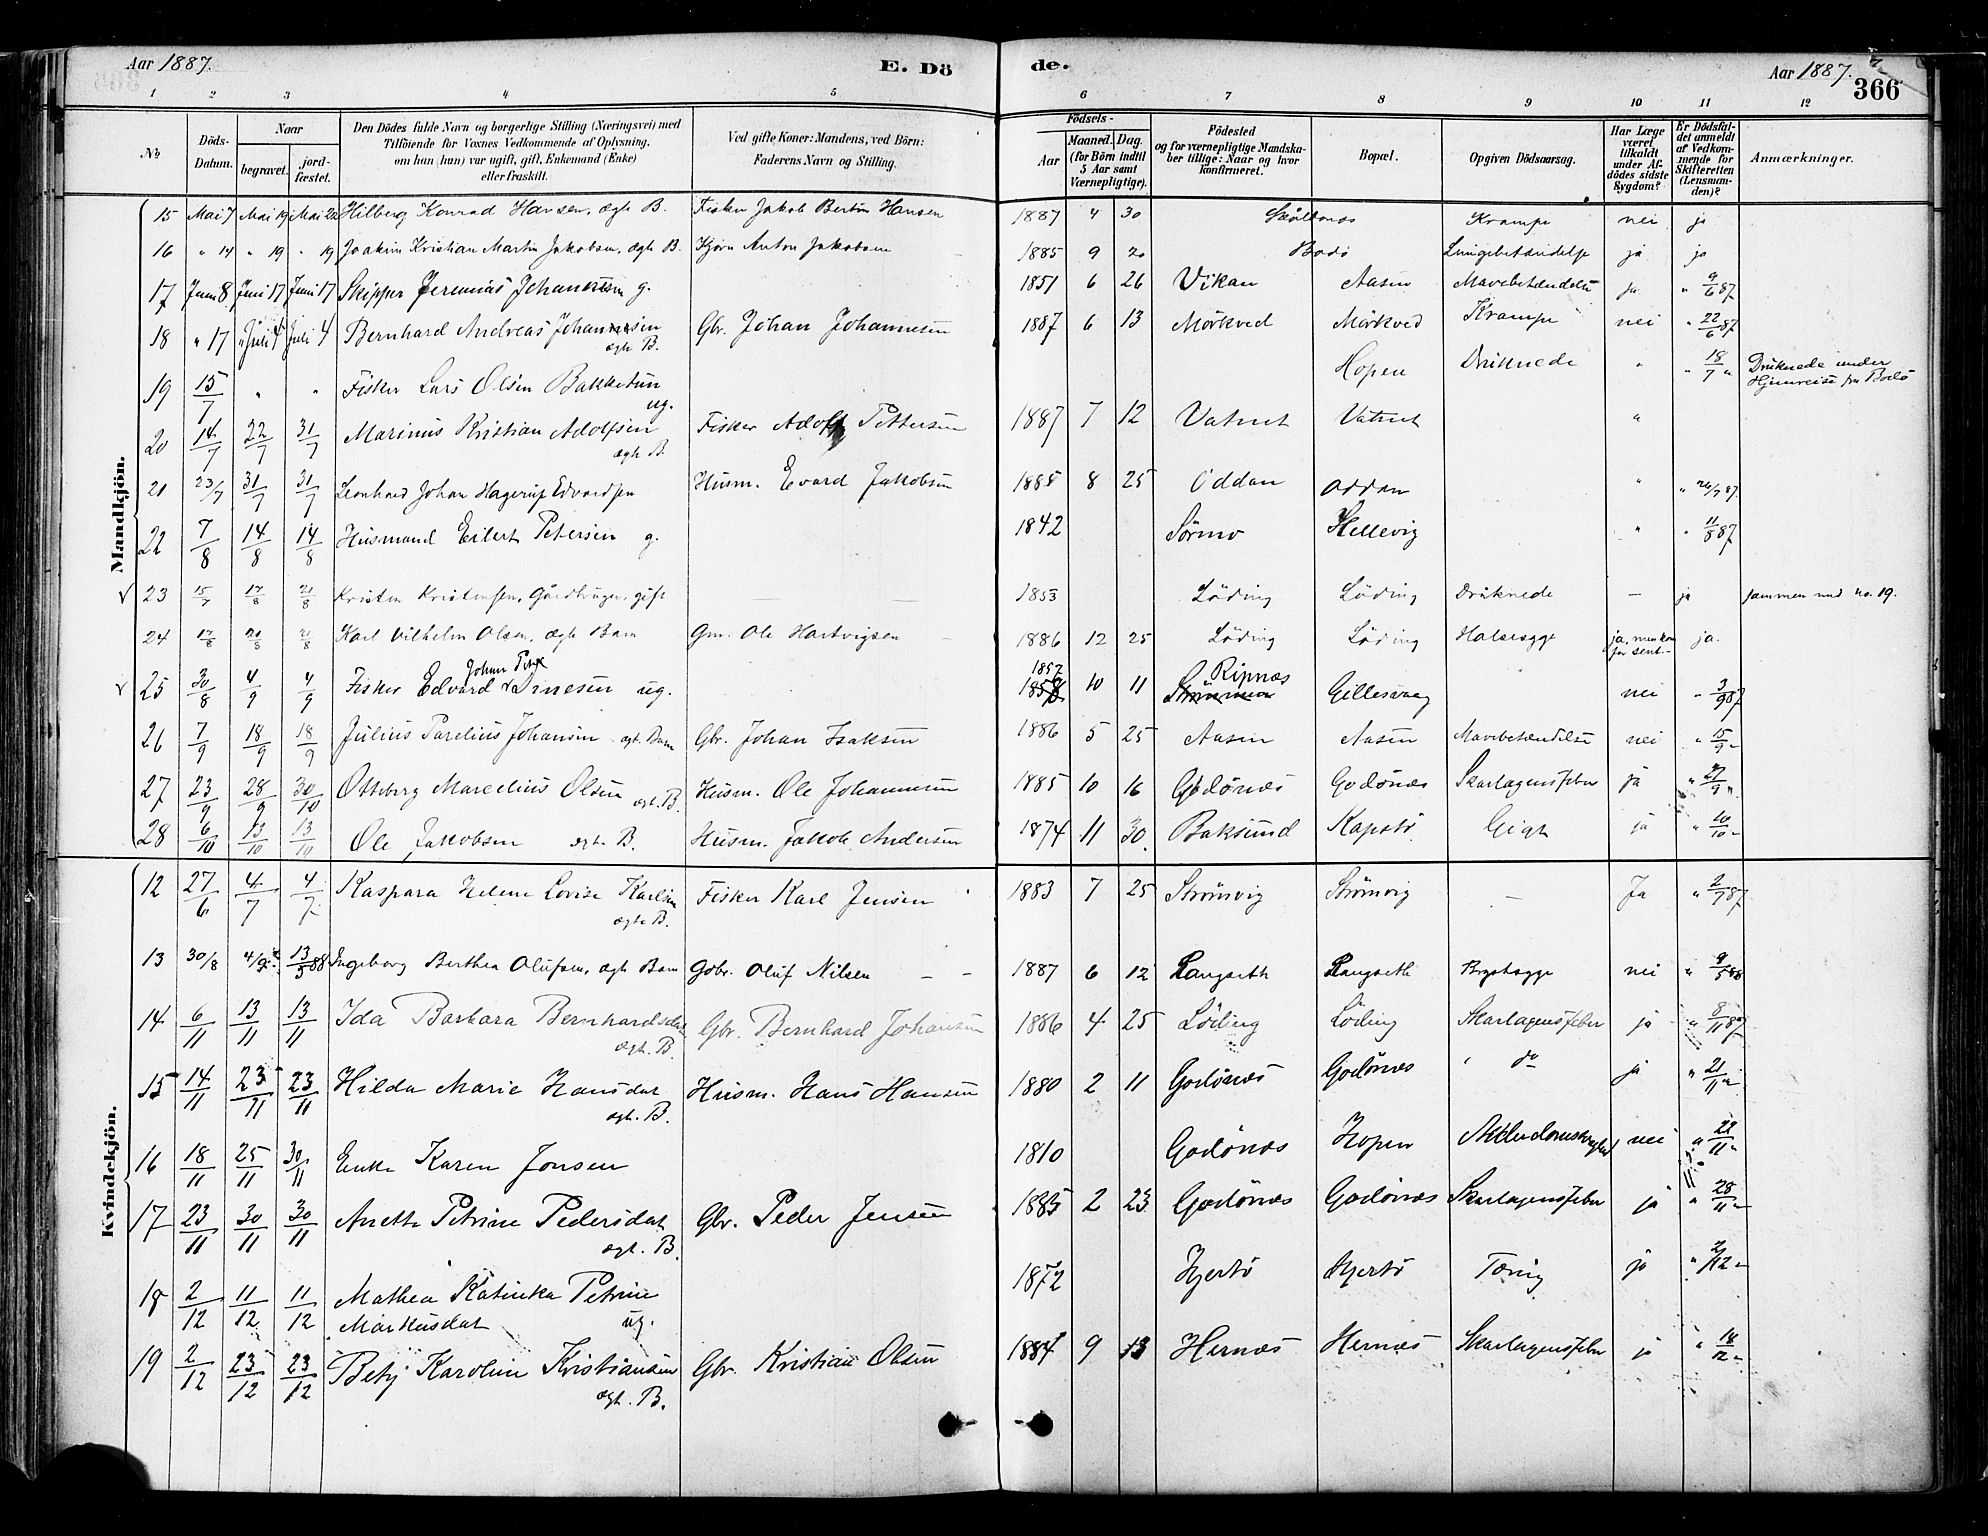 Aar 1887.
E. Dö
de.
Aar 1887.
366
1 2 3 4 5 6 7 8 9 10 11 12
No
Döds-Datum.
Naar
begravet.
jord-fæstet.
Den Dödes fulde Navn og borgerlige Stilling (Næringsvei) med
Tilföiende for Voxnes Vedkommende af Oplysning,
om han (hun) var ugift, gift, Enkemand (Enke)
eller fraskilt.
Ved gifte Koner: Mandens, ved Börn:
Faderens Navn og Stilling.
Födsels-
Aar
Maaned.
Dag.
(for Börn indtil 5 Aar samt Værnepligtige).
Födested
og for værnepligtige Mandska-
ber tillige: Naar og hvor
konfirmeret.
Bopæl.
Opgiven Dödsaarsag.
Har Læge været tilkaldt under Af-dödes sidste Sygdom?
Er Dödsfal-det anmeldt af Vedkom-mende for Skifteretten (Lensman-den)?
Anmærkninger.
Mandkjön.
15 Mai 7 Mai 19 Mai 22 Hilberg Konrad Hansen, ægte B. Fisker Jakob Bertin Hansen 1887 4 30 Skålbones Krampe nei ja
16 " 14 " 19 " 19 Joakim Kristian Martin Jakobsen, ægte B. Anton Jakobsen 1885 9 20 Bodö Lungebetændelse ja ja
17 Juni 8 Juni 17 Juni 17 Skipper Jeremias Johannesen g. 1851 6 26 Vikan Aasen Mavebetændelse ja " 9/6 87
18 " 17 Juli 4 Juli 4 Bernhard Andreas Johannesen ægte B. Gbr. Johan Johannesen 1887 6 13 Mörkved Mörkved Krampe nei " 22/6 87
19 15/7 " " Fisker Lars Olsen Bakketun ug. Hopen Druknede " " 18/7 " Druknede under
Hjemreise fra Bodö
20 14/7 22/7 31/7 Marinus Kristian Adolfsen ægte B. Fisker Adolf Pettersen 1887 7 12 Vatnet Vatnet "
21 23/7 31/7 31/7 Leonhard Johan Hagerup Edvardsen Husm. Evard Jakobsen 1885 8 25 Oddan Oddan " " 26/7 87.
22 7/8 14/8 14/8 Husmand Eilert Petersen g. 1842 Sörmo Hellevig " " 11/8 87
23 15/7 17/8 21/8 Kristen Kristensen, Gårdbruger, gift — — 1853 Löding Löding Druknede — ja sammen med no. 19.
24 17/8 20/8 21/8 Karl Vilhelm Olsen, ægte Barn Gm. Ole Hartvigsen 1886 12 25 Löding Löding Halssyge ja, men kom for sent. ja.
25 30/8 4/9 4/9 Fisker Edvard Johan Arnesen ug. 1857 10 11 Ripnæs Gillesvaag nei " 3/9 87
26 7/9 18/9 18/9 Julius Parelius Johansen ægt. Barn Gbr. Johan Isaksen 1886 5 25 Aasen Aasen Mavebetændelse nei " 15/9 "
27 23/9 28/9 30/10 Otteberg Marcelius Olsen ægt. B. Husm. Ole Johannesen 1885 10 16 Godönæs Godönæs Skarlagensfeber ja " 27/9 "
28 6/10 13/10 13/10 Ole Jakobsen ægte B. Husm. Jakob Andersen 1874 11 30 Baksund Kapstö Gigt ja " 10/10 "
Kvindekjön.
12 27/6 4/7 4/7 Kaspara Helene Lovise Karlsen ægte B. Fisker Karl Jensen 1883 7 25 Strömsvig Strömsvig — Ja " 2/7 87
13 30/8 4/9 13/5 88 Ingeborg Berthea Olufsen, ægte Barn Gbr. Oluf Nilsen 1887 6 12 Langseth Langseth Brystsyge nei " 9/5 88
14 6/11 13/11 13/11 Ida Barbara Bernhardsdat ægt. B. Gbr. Bernhard Johansen 1886 4 25 Löding Löding Skarlagensfeber ja " 8/11 87
15 14/11 23/11 23/11 Hilda Marie Hansdat ægt. B. Husm. Hans Hansen 1880 2 11 Godönæs Godönæs " do ja " 21/11 "
16 18/11 25/11 30/11 Enke Karen Jonsen 1810 Godönæs Hopen Alderdomssvaghed nei " 22/11 "
17 23/11 30/11 30/11 Anette Petrine Pedersdat ægt. B. Gbr. Peder Jensen 1885 2 23 Godönæs Godönæs Skarlagensfeber ja " 28/11 "
18 2/12 11/12 11/12 Mathea Katinka Petrine
Markusdat ug. 1872 Hjertö Hjertö Tæring ja " 2/12 "
19 2/12 23/12 23/12 Betzj Karoline Kristiansen ægt. B. Gbr. Kristian Olsen 1884 9 13 Hernæs Hernæs Skarlagensfeber ja " 18/12 "